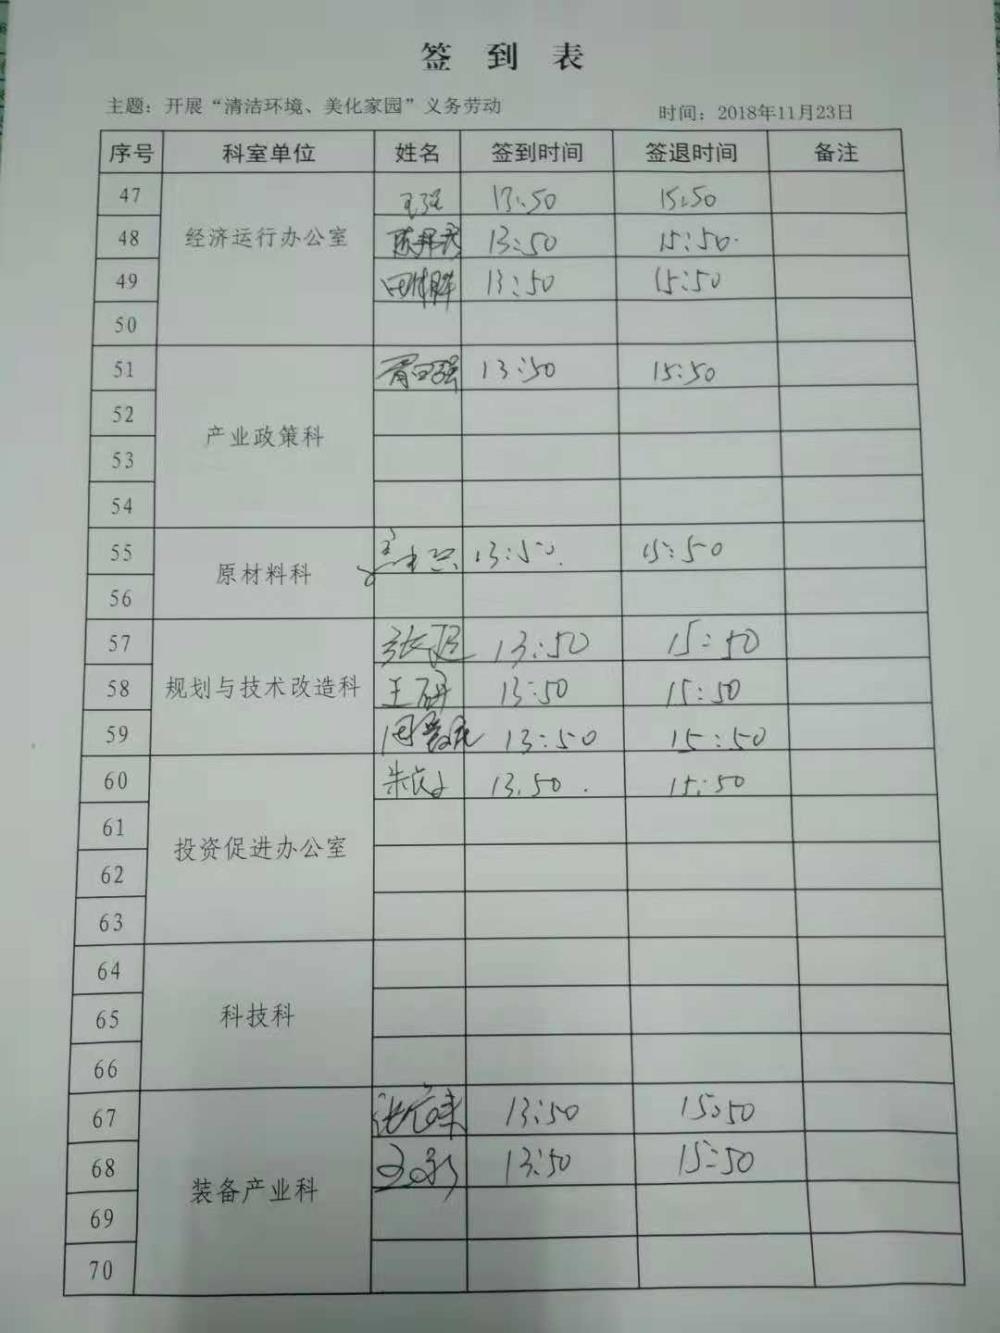 签到表
主题：开展“清洁环境、美化家园”义务劳动
时间：2018年11月23日
序号 科室单位 姓名 签到时间 签退时间 备注
经济运行办公室
47 王强 13:50 15:50
48 13:50 15:50
49 13:50 15:50
50
产业政策科
51 13:50 15:50
52
53
54
原材料科
55 13:50 15:50
56
规划与技术改造科
57 张超 13:50 15:50
58 王研 13:50 15:50
59 13:50 15:50
投资促进办公室
60 13:50 15:50
61
62
63
科技科
64
65
66
装备产业科
67 13:50 15:50
68 13:50 15:50
69
70